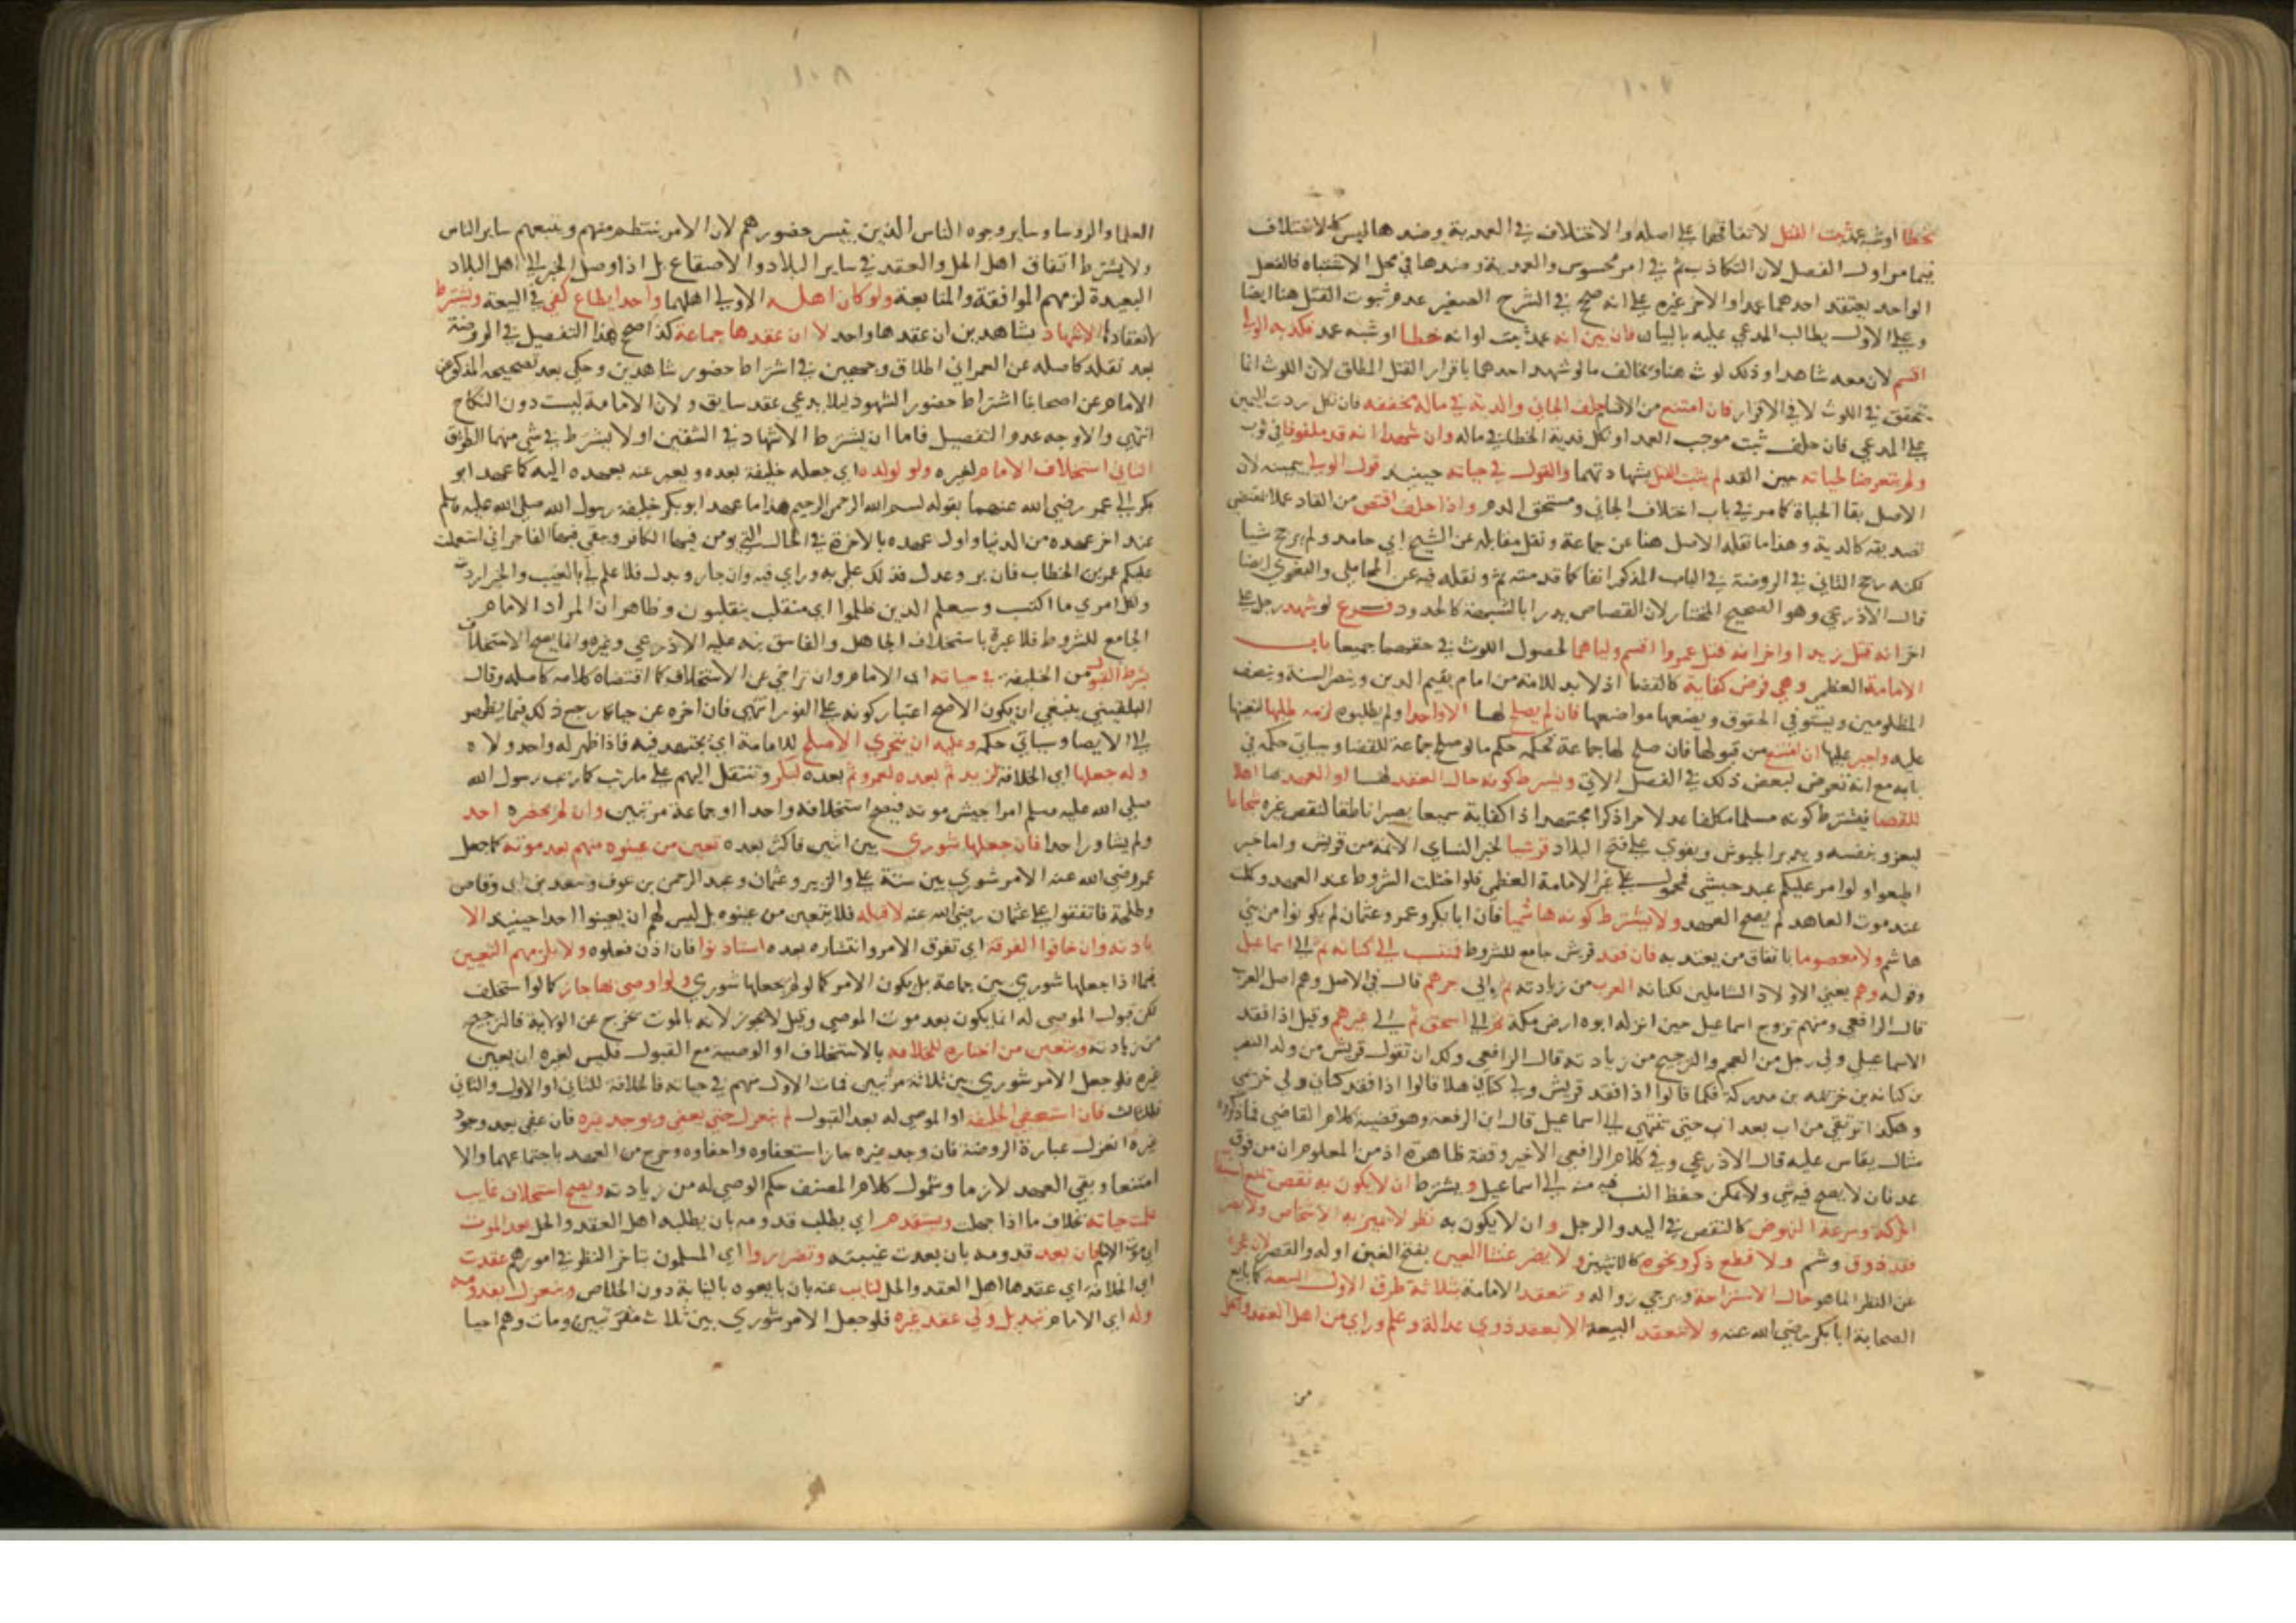 ١٠٧
بخطا او شبه عمد ثبت القتل لاتفاقهما على اصله والاختلاف في العمدية وضدها ليس كالاختلاف
فيما مر اول الفصل لان التكاذب ثم في امر محسوس والعمدية وضدها في محل الاشتباه فالفعل
الواحد يعتقد احدهما عمدا والاخر غيره على انه صحح في الشرح الصغير عدم ثبوت القتل هنا ايضا
وعلى الاول يطالب المدعي عليه بالبيان فان بين انه عمد ثبت او انه خطا او شبه عمد فكذبه الولي
اقسم لان معه شاهدا وذلك لوث هنا ويخالف ما لو شهد احدهما باقرار القتل المطلق لان اللوث انما
يتحقق في اللوث لا في الاقرار فان امتنع من الاقسام حلف الجاني والدية في ماله مخففه فان نكل ردت اليمين
على المدعي فان حلف ثبت موجب العمد او نكل فدية الخطا في ماله وان شهدا انه قد ملفوفا في ثوب
ولم يتعرضا لحياته حين القد لم يثبت القتل بشهادتهما والقول في حياته حينيد قول الولي بيمينه لان
الاصل بقا الحياة كما مر في باب اختلاف الجاني ومستحق الدم واذا حلف اقتص من القاد عملا بمقتضى
تصديقه كالدية وهذا ما نقله الاصل هنا عن جماعة ونقل مقابله عن الشيخ ابي حامد ولم يرجح شيا
لكنه رجح الثاني في الروضة في الباب المذكور انفا كما قدمته ثم ونقله فيه عن المحاملي والبغوي ايضا
قال الاذرعي وهو الصحيح المختار لان القصاص يدرا بالشبهة كالحدود فرع لو شهد رجل على
اخر انه قتل زيدا واخر انه قتل عمروا اقسم ولياهما لحصول اللوث في حقهما جميعا باب
الامامة العظمى وهي فرض كفاية كالقضا اذ لا بد للامة من امام يقيم الدين وينصر السنة وينصف
المظلومين ويستوفي الحقوق ويضعها مواضعها فان لم يصلح لها الا واحد ولم يطلبوه لزمه طلبها لتعينها
عليه واجبر عليها ان امتنع من قبولها فان صلح لها جماعة فحكمه حكم ما لو صلح جماعة للقضا وسياتي حكمه في
بابه مع انه تعرض لبعض ذلك في الفصل الاتي ويشترط كونه حال العقد لها او العهد بها اهلا
للقضا فيشترط كونه مسلما مكلفا عدلا حرا ذكرا مجتهدا ذا كفاية سميعا بصيرا ناطقا لنقص غيره شجاعا
ليغزو بنفسه ويدبر الجيوش ويقوي على فتح البلاد قرشيا لخبر النساي الائمة من قريش واما خبر
اطيعوا ولو امر عليكم عبد حبشي فمحمول على غير الامامة العظمى فلو اختلت الشروط عند العهد وكملت
عند موت العاهد لم يصح العهد ولا يشترط كونه هاشميا فان ابا بكر وعمر وعثمان لم يكونوا من بني
هاشم ولا معصوما باتفاق من يعتد به فان فقد قرشي جامع للشروط فمنتسب الى كنانه ثم الى اسماعيل
وقوله وهم يعني الاولاد الشاملين لكنانه العرب من زيادته ثم يولى جرهم قال في الاصل وهم اصل العرب
قال الرافعي ومنهم تزوج اسماعيل حين انزله ابوه ارض مكة ثم الى اسحق ثم الى غيرهم وقيل اذا فقد
الاسماعيلي ولي رجل من العجم والترجيح من زيادته قال الرافعي ولك ان تقول قريش من ولد النضر
بن كنانه بن خزيمه بن مدركة فكما قالوا اذا فقد قريش ولي كناني هلا قالوا اذا فقد كناني ولي خزيمي
وهكذا نرتقي من اب بعد اب حتى ننتهي الى اسماعيل قال ابن الرفعه وهو قضية كلام القاضي فما ذكروه
مثال يقاس عليه قال الاذرعي وفي كلام الرافعي الاخير وقفة ظاهرة اذ من المعلوم ان من فوق
عدنان لا يصح فيه شي ولا يمكن حفظ النسب فيه منه الى اسماعيل ويشترط ان لا يكون به نقص يمنع استيفا
الحركة وسرعة النهوض كالنقص في اليد والرجل وان لا يكون به نظر لا يميز به الاشخاص ولا يضر
فقد ذوق وشم ولا قطع ذكر ونحوه كالانثيين ولا يضر عشا العين بفتح العين اوله والقصر لان عجزه
عن النظر انما هو حال الاستراحة ويرجى زواله وتنعقد الامامة بثلاثة طرق الاول البيعة كما بايع
الصحابة ابا بكر رضي الله عنه ولا تنعقد البيعة الا بعقد ذوي عدالة وعلم وراي من اهل العقد والحل
من
١٠٨
العلما والروسا وساير وجوه الناس الذين يتيسر حضورهم لان الامر ينتظم منهم ويتبعهم ساير الناس
ولا يشترط اتفاق اهل الحل والعقد في ساير البلاد والاصقاع بل اذا وصل الخبر الى اهل البلاد
البعيدة لزمهم الموافقة والمتابعة ولو كان اهله الاولى اهلهما واحد يطاع كفى في البيعة ويشترط
لانعقادها الاشهاد بشاهدين ان عقدها واحد لا ان عقدها جماعة كذا صحح هذا التفصيل في الروضة
بعد نقله كاصله عن العمراني اطلاق وجهين في اشتراط حضور شاهدين وحكى بعد تصحيحه المذكور عن
الامام عن اصحابنا اشتراط حضور الشهود ليلا يدعي عقد سابق ولان الامامة ليست دون النكاح
انتهى والاوجه عدم التفصيل فاما ان يشترط الاشهاد في الشقين او لا يشترط في شي منهما الطريق
الثاني استخلاف الامام لغيره ولو لولده اي جعله خليفة بعده ويعبر عنه بعهده اليه كما عهد ابو
بكر الى عمر رضي الله عنهما بقوله بسم الله الرحمن الرحيم هذا ما عهد ابو بكر خليفة رسول الله صلى الله عليه وسلم
عند اخر عهده من الدنيا واول عهده بالاخرة في الحالة التي يومن فيها الكافر ويتقي فيها الفاجر اني استعملت
عليكم عمر بن الخطاب فان بر وعدل فذلك علمي به ورايي فيه وان جار وبدل فلا علم لي بالغيب والخير اردت
ولكل امرئ ما اكتسب وسيعلم الذين ظلموا اي منقلب ينقلبون وظاهر ان المراد الامام
الجامع للشروط فلا عبرة باستخلاف الجاهل والفاسق نبه عليه الاذرعي وغيره وانما يصح الاستخلاف
بشرط القبول من الخليفة في حياته اي الامام وان تراخى عن الاستخلاف كما اقتضاه كلامه كاصله وقال
البلقيني ينبغي ان يكون الاصح اعتبار كونه على الفور انتهى فان اخره عن حياته رجع ذلك فيما يظهر
الى الايصا وسياتي حكمه وعليه ان يتحرى الاصلح للامامة اي يجتهد فيه فاذا ظهر له واحد ولاه
وله جعلها اي الخلافة لزيد ثم بعده لعمرو ثم بعده لبكر وتنتقل اليهم على ما رتب كما رتب رسول الله
صلى الله عليه وسلم امرا جيش موته فيصح استخلافه واحدا او جماعة مرتبين وان لم يحضره احد
ولم يشاور احدا فان جعلها شورى بين اثنين فاكثر بعده تعين من عينوه منهم بعد موته كما جعل
عمر رضي الله عنه الامر شورى بين ستة علي والزبير وعثمان وعبد الرحمن بن عوف وسعد بن ابي وقاص
وطلحة فاتفقوا على عثمان رضي الله عنه لا قبله فلا يتعين من عينوه بل ليس لهم ان يعينوا احدا حينيد الا
باذنه وان خافوا الفرقة اي تفرق الامر وانتشاره بعده استاذنوا فان اذن فعلوه ولا يلزمهم التعيين
فيما اذا جعلها شورى بين جماعة بل يكون الامر كما لو لم يجعلها شورى ولو اوصى بها جاز كما لو استخلف
لكن قبول الموصى له انما يكون بعد موت الموصي وقيل لا يجوز لانه بالموت يخرج عن الولاية فالترجيح
من زيادته ويتعين من اختاره للخلافه بالاستخلاف او الوصية مع القبول فليس لغيره ان يعين
غيره فلو جعل الامر شورى بين ثلاثة مرتبين فمات الاول منهم في حياته فالخلافة للثاني او الاول والثاني
فللثالث فان استعفى الخليفة او الموصى له بعد القبول لم ينعزل حتى يعفى ويوجد غيره فان عفي بعد وجود
غيره انعزل عبارة الروضة فان وجد غيره جاز استعفاوه واعفاوه وخرج من العهد باجتماعهما والا
امتنعا وبقي العهد لازما وشمول كلام المصنف حكم الوصي له من زيادته ويصح استخلاف غايب
علمت حياته بخلاف ما اذا جهلت ويستقدم اي يطلب قدومه بان يطلبه اهل العقد والحل بعد الموت
اي موت الامام فان بعد قدومه بان بعدت غيبته وتضرروا اي المسلمون بتاخر النظر في امورهم عقدت
اي الخلافة اي عقدها اهل العقد والحل لنايب عنه بان بايعوه بالنيابة دون الخلاص وينعزل بقدومه
وله اي الامام تبديل ولي عقد غيره فلو جعل الامر شورى بين ثلاث مترتبين ومات وهم احيا